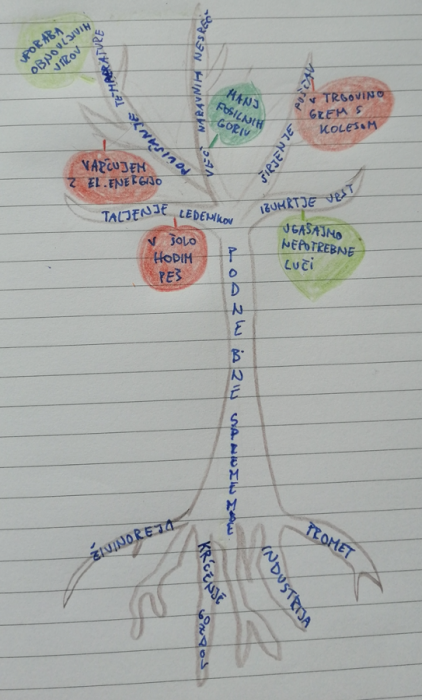 UPORABA
OBNOVLJIVIH
VIROV
POVIŠANJE TEMPERATURE
VEČ NARAVNIH NESREČ
MANJ
FOSILNIH
GORIV
ŠIRJENJE PUŠČAV
V TRGOVINO
GREM S
KOLESOM
VARČUJEM
Z EL. ENERGIJO
TALJENJE LEDENIKOV
IZUMRTJE VRST
V ŠOLO
HODIM
PEŠ
UGAŠAJMO
NEPOTREBNE
LUČI
PODNEBNE SPREMEMBE
ŽIVINOREJA
KRČENJE GOZDOV
INDUSTRIJA
PROMET